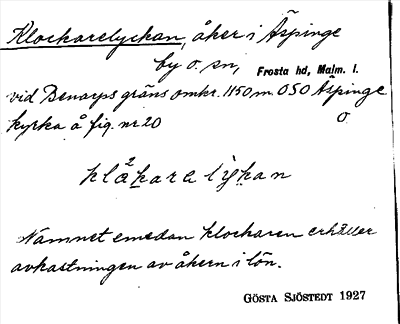 Klockarelyckan, åker i Äspinge
by o. sn, Frosta hd, Malm. l.
vid Benarps gräns omkr. 1150 m. OSO Äspinge
kyrka å fig. nr 20 O
Namnet emedan klockaren erhåller
avkastningen av åkern i lön.
GÖSTA SJÖSTEDT 1927